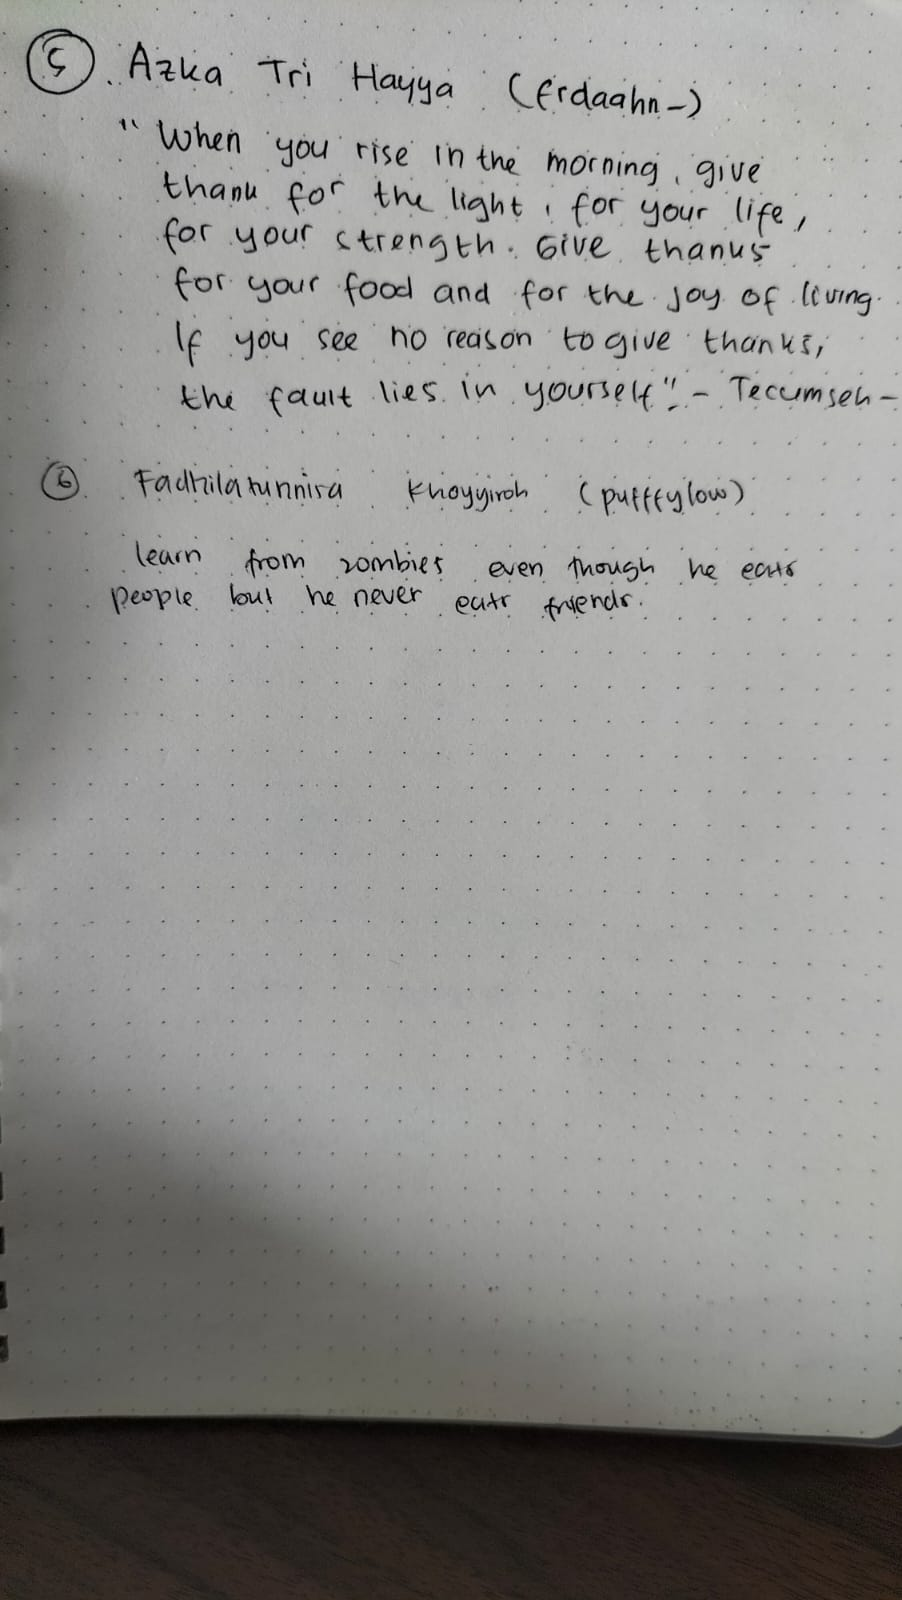 5. Azka Tri Hayya (Erdaahn-)
"When you rise in the morning, give
thank for the light, for your life,
for your strength. Give thanks
for your food and for the joy of living.
If you see no reason to give thanks,
the fault lies in yourself" - Tecumseh -
6. Fadhilatunnisa Khoyyiroh (pufffylow)
learn from zombies even though he eats
people but he never eats friends.